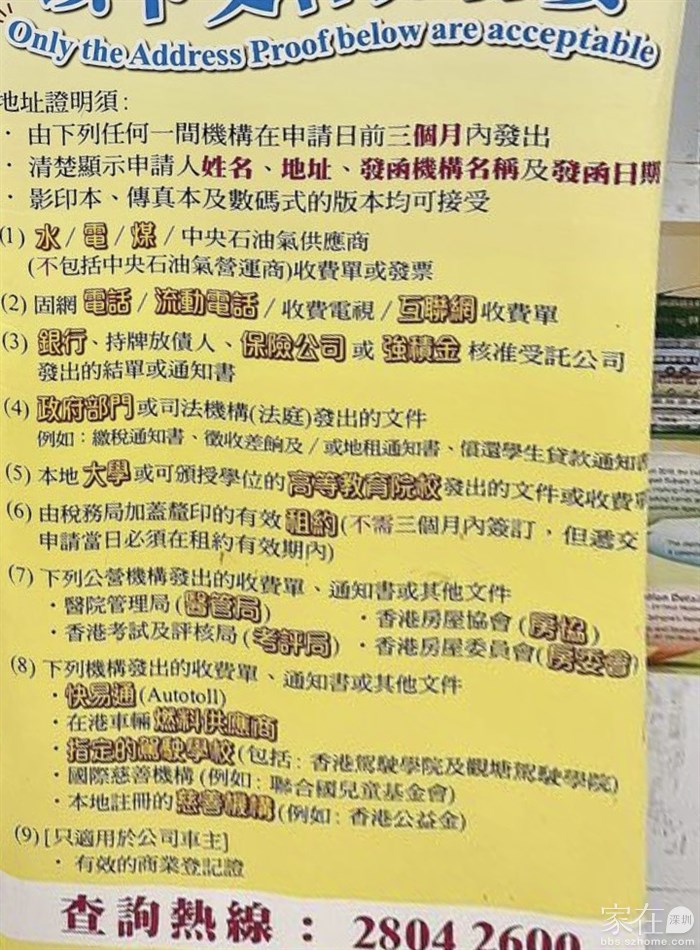 Only the Address Proof below are acceptable
地址證明須：
· 由下列任何一間機構在申請日前三個月內發出
· 清楚顯示申請人姓名、地址、發函機構名稱及發函日期
· 影印本、傳真本及數碼式的版本均可接受
(1) 水/電/煤/中央石油氣供應商
(不包括中央石油氣營運商)收費單或發票
(2) 固網電話/流動電話/收費電視/互聯網收費單
(3) 銀行、持牌放債人、保險公司或強積金核准受託公司
發出的結單或通知書
(4) 政府部門或司法機構(法庭)發出的文件
例如：繳稅通知書、徵收差餉及/或地租通知書、償還學生貸款通知書
(5) 本地大學或可頒授學位的高等教育院校發出的文件或收費單
(6) 由稅務局加蓋釐印的有效租約(不需三個月內簽訂，但遞交
申請當日必須在租約有效期內)
(7) 下列公營機構發出的收費單、通知書或其他文件
· 醫院管理局(醫管局) · 香港房屋協會(房協)
· 香港考試及評核局(考評局) · 香港房屋委員會(房委會)
(8) 下列機構發出的收費單、通知書或其他文件
· 快易通(Autotoll)
· 在港車輛燃料供應商
· 指定的駕駛學校(包括：香港駕駛學院及觀塘駕駛學院)
· 國際慈善機構(例如：聯合國兒童基金會)
· 本地註冊的慈善機構(例如：香港公益金)
(9) [只適用於公司車主]
· 有效的商業登記證
查詢熱線：2804 2600
家在深圳
bbs.szhome.com